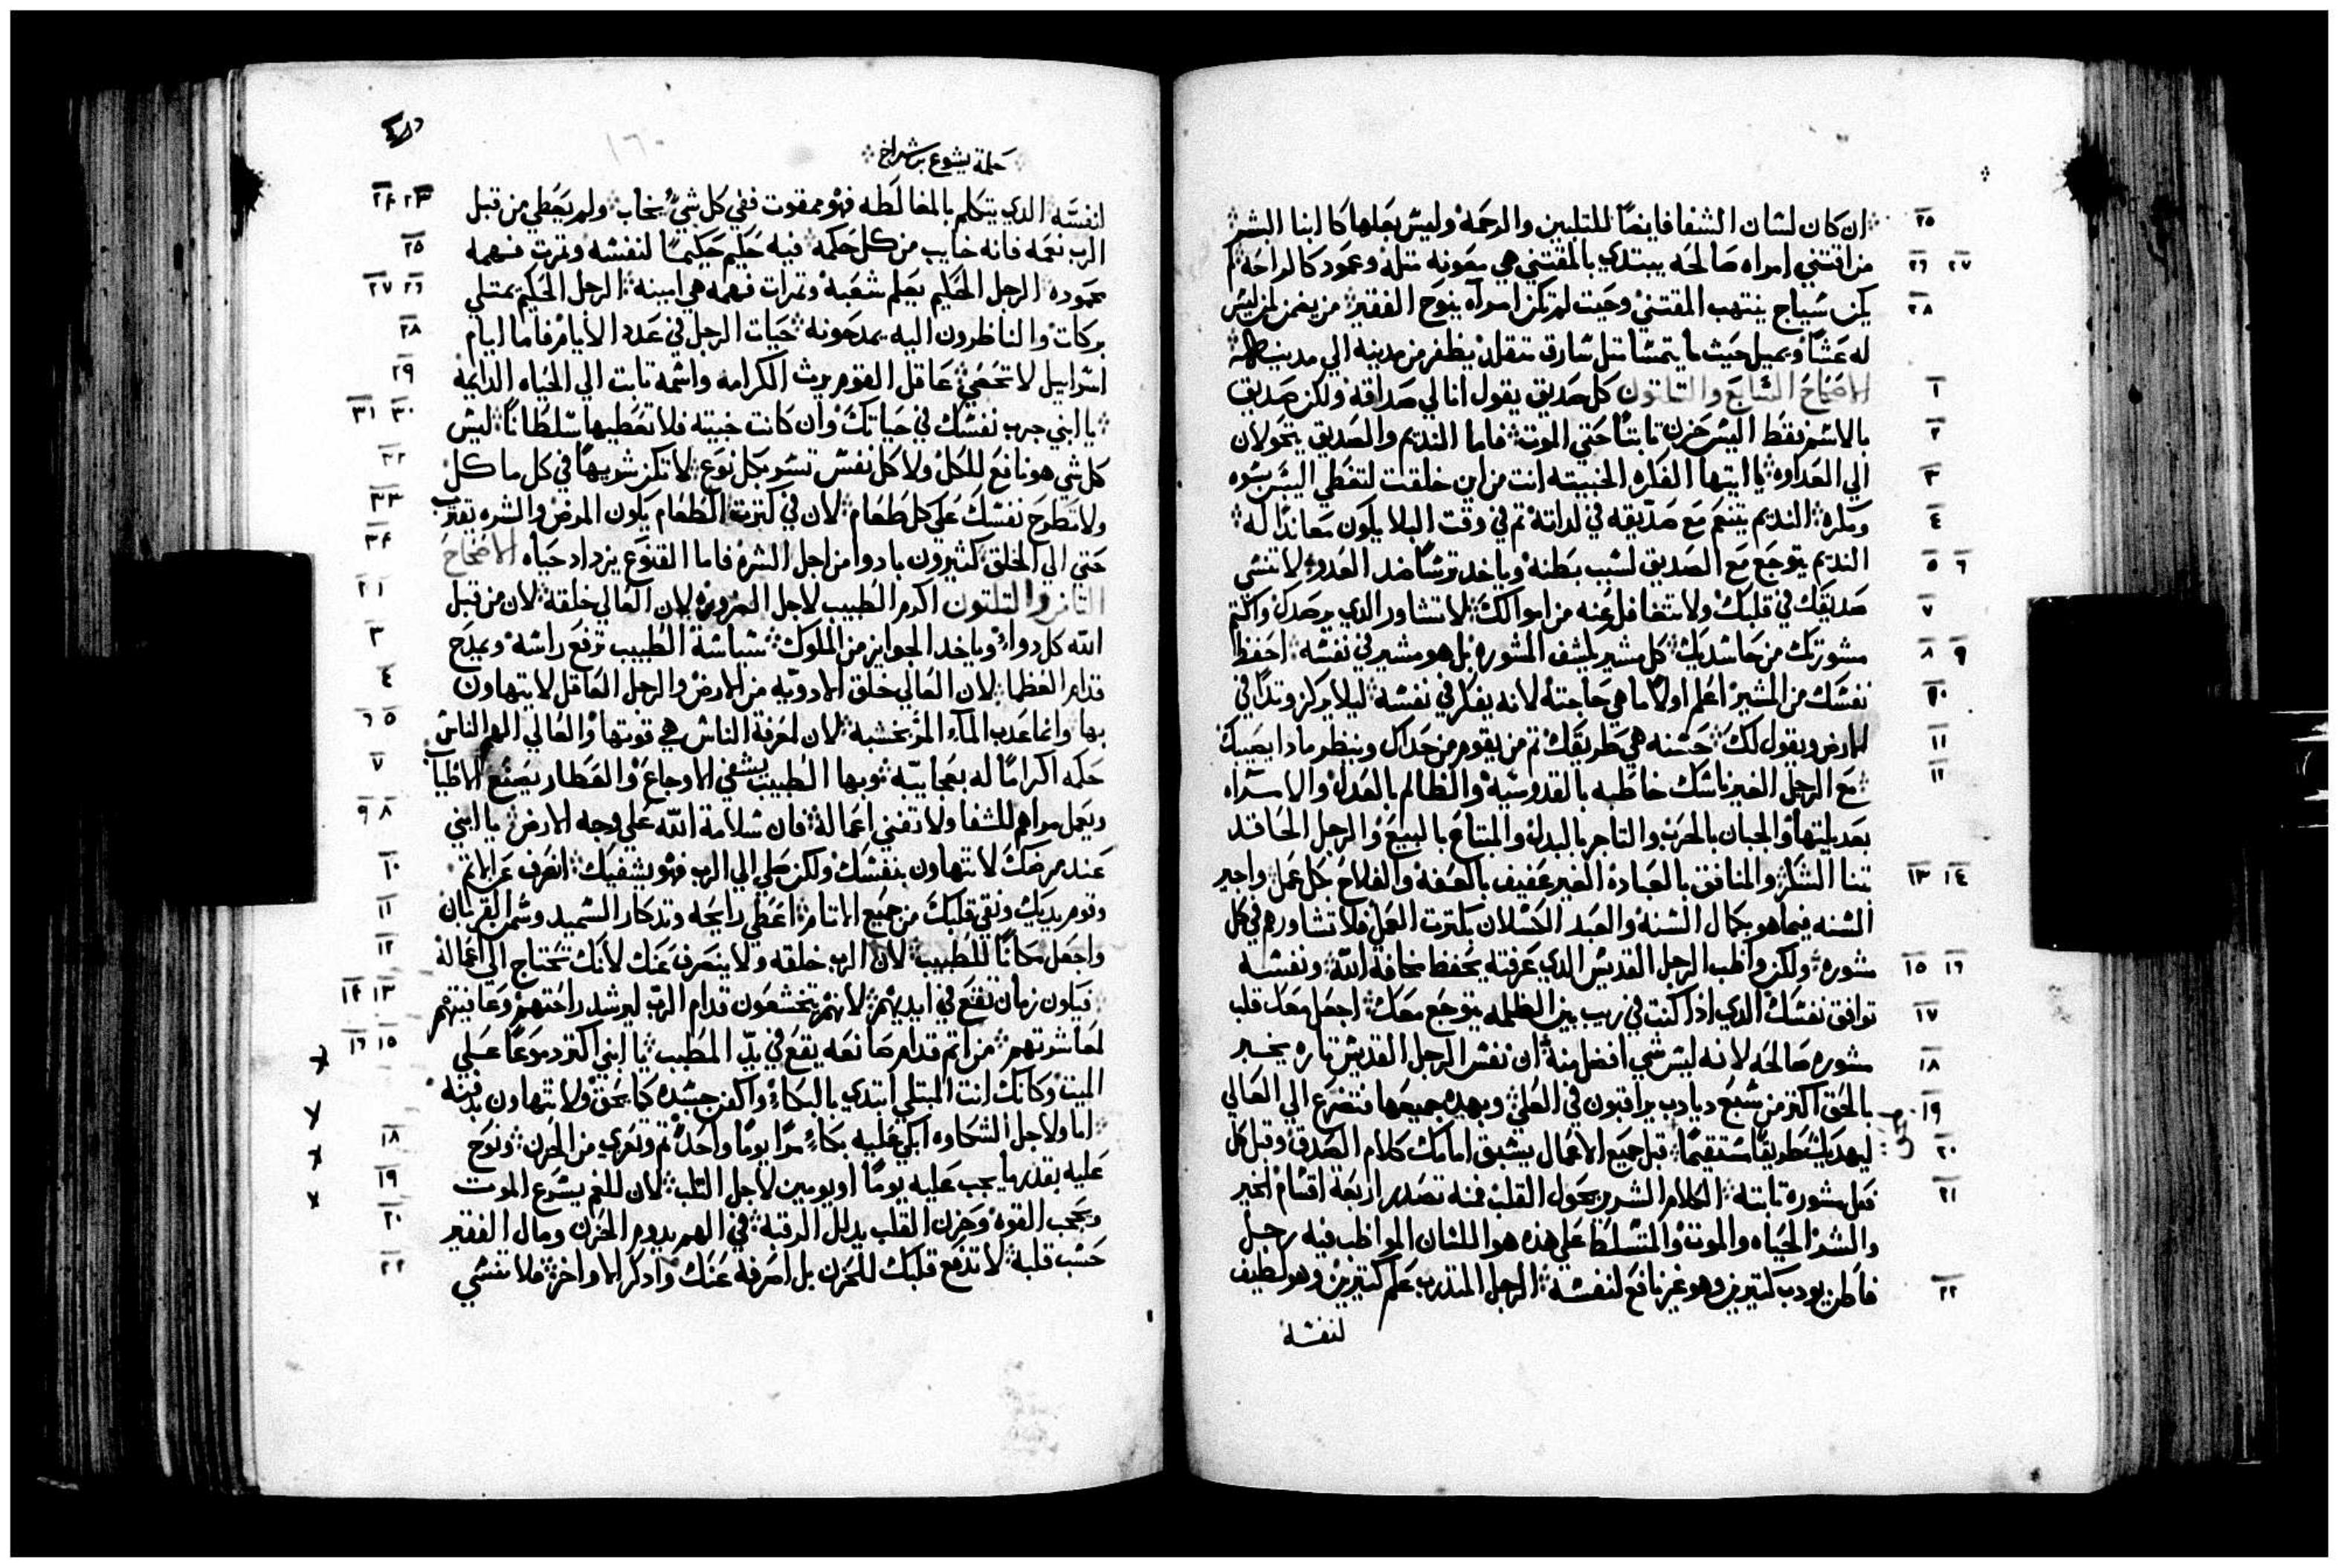 ان كان لسان الشفا فايضاً للتليين والرحمة وليس بعلها كابنا البشر
من اقتني امراه صالحه يبتدي بالمقتني هي معونه مثله وعمود كالراحة ان لم
يكن سياج ينتهب المقتني وحيث لم تكن امراه ينوح الفقير من يومن لمن ليس
له عشاً ويميل حيث ما يتمسا مثل سارق متقلد يظفر من مدينه الي مدينه
الاصحاح السابع والثلثون كل صديق يقول انا لي صداقه ولكن صديق
بالاسم فقط اليس حزن ثابتاً حتي الموت فاما النديم والصديق يتحولان
الي العداوه يا ايتها الفكره الخبيثه انت من اين خلقت لتغطي اليبس بسوه
ومكره النديم يتنعم مع صديقه في لداته ثم في وقت البلا يكون معانداً له
النديم يتوجع مع الصديق لسبب بطنه وياخد ترساً ضد العدو لا تنسي
صديقك في قلبك ولا تتغافل عنه من اموالك لا تشاور الدي يرصدك واكتم
مشورتك من حاسديك كل مشير يكشف المشوره بل هو مشير في نفسه احفظ
نفسك من المشير اعلم اولاً ما هي حاجته لانه يفكر في نفسه ليلا يركز وتداً في
الارض ويقول لك حسنه هي طريقك ثم من يقوم من حداك وينظر مادا يصيبك
مع الرجل الغير ناسك خاطبه بالقدوسيه والظالم بالعدل والامراه
بعديلتها والجبان بالحرب والتاجر بالبدل والمبتاع بالبيع والرجل الحاقد
بثنا الشكر والمنافق بالعبادة الغير عفيف بالعفه والفلاح بكل عمل واجير
السنه فيما هو بكمال السنه والعبد الكسلان بكثرت العمل فلا تشاورهم في كل
مشوره ولكن واظب الرجل القديس الدي عرفته يحفظ مخافة الله ونفسه
توافق نفسك الدي ادا كنت في ريب بين الظلمه يتوجع معك اجعل معك قلب
مشوره صالحه لانه ليس شي افضل منه ان نفس الرجل القديس تاره يخبر
بالحق اكثر من سبع دبادب يراقبون في العلي وبهده جميعها فتضرع الي العالي
ليهديك طريقاً مستقيماً قبل جميع الاعمال يسبق امامك كلام الصدق وقبل كل
فعل مشوره ثابته الكلام الشرير يحول القلب فمنه تصدر اربعة اقسام الخير
والشر الحياه والموت والمتسلط علي هده هو اللسان المواظب فيه رجل
فاطن يودب كثيرين وهو غير نافع لنفسه الرجل المتدرب علم كثيرين وهو لطيف
لنفسه
حكمة يشوع بن شيراخ
لنفسه الدي يتكلم بالمغالطه فهو ممقوت ففي كل شي يخاب ولم يعطي من قبل
الرب نعمه فانه خايب من كل حكمه فيه حكيم حكيماً لنفسه وثمرت فهمه
محموده الرجل الحكيم يعلم شعبه وثمرات فهمه هي امينه الرجل الحكيم يمتلي
بركات والناظرون اليه يمدحونه حيات الرجل في عدد الايام فاما ايام
اسراييل لا تحصي عاقل القوم يرث الكرامه واسمه ثابت الي الحياه الدايمه
يا ابني جرب نفسك في حياتك وان كانت خبيثه فلا تعطيها سلطاناً ليس
كل شي هو نافع للكل ولا كل نفس تسر بكل نوع لا تكن شريهاً في كل ماكل
ولا تطرح نفسك علي كل طعام لان في كثرت الطعام يكون المرض والشره يقترب
حتي الي الخلق كثيرون بادوا من اجل الشره فاما القنوع يزداد حياه الاصحاح
الثامن والثلثون اكرم الطبيب لاجل الضروره لان العالي خلقه لان من قبل
الله كل دواء وياخد الجوايز من الملوك سياسة الطبيب ترفع راسه ويمدح
قدام العظما لان العالي خلق الادويه من الارض والرجل العاقل لا يتهاون
بها وانما عدب الماء المر بخشبه لان لمعرفة الناس هي قوتها والعالي الهم الناس
حكمه اكراماً له بعجايبه وبها الطبيب يشفي الاوجاع والعطار يصنع الاطياب
ويعمل مراهم للشفا ولا تفني اعماله فان سلامة الله علي وجه الارض يا ابني
عند مرضك لا تتهاون بنفسك ولكن صلي الي الرب فهو يشفيك انصرف عن الاثم
وقوم يديك ونقي قلبك من جميع الاثام اعطي رايحه وتدكار السميد وسمن القربان
واجعل مكاناً للطبيب لان الرب خلقه ولا ينصرف عنك لانك تحتاج الي اعماله
فيكون زمان تقع في ايديهم لانهم يتخشعون قدام الرب ليرشد راحتهم وعافيتهم
لمعاشرتهم من اثم قدام صانعه يقع في يد المطبب يا ابني اكثر دموعاً علي
الميت وكانك انت المبتلي ابتدي بالبكاء واكفن جسده كما يحق ولا تتهاون بدفنه
اما ولاجل الشكاوه ابكي عليه بكاء مراً يوماً واحداً ثم وتعزي من الحزن ونوح
عليه بقدرما يجب عليه يوماً او يومين لاجل الثلب لان للغم يسرع الموت
ويحجب القوه وحزن القلب يدلل الرقبه في الهم يدوم الحزن ومال الفقير
حسب قلبه لا تدفع قلبك للحزن بل اصرفه عنك وادكر الاواخر فلا تنسي